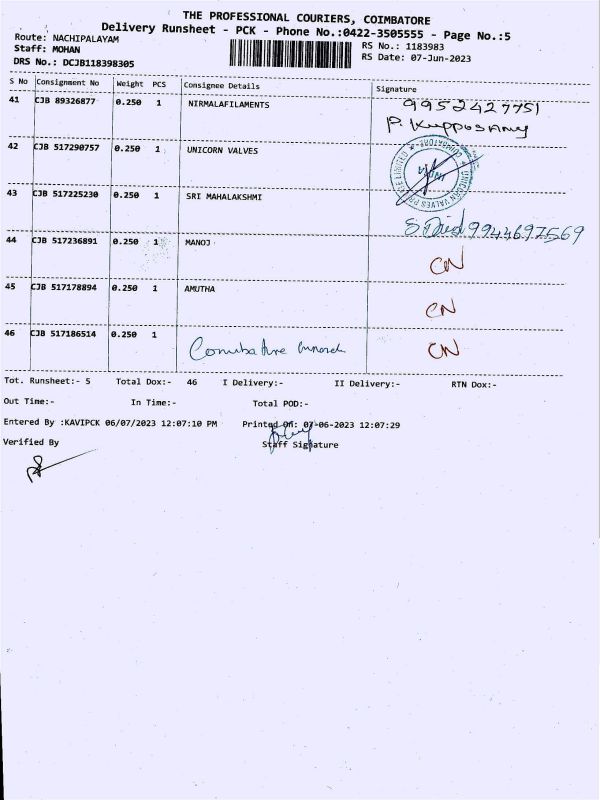 THE PROFESSIONAL COURIERS, COIMBATORE
Delivery Runsheet - PCK - Phone No.:0422-3505555 - Page No.:5
Route: NACHIPALAYAM
RS No.: 1183983
Staff: MOHAN
RS Date: 07-Jun-2023
DRS No.: DCJB118398305
S No Consignment No Weight PCS Consignee Details Signature
41 CJB 89326877 0.250 1 NIRMALAFILAMENTS 9952427751
P. Kupposamy
42 CJB 517290757 0.250 1 UNICORN VALVES
UNICORN VALVES PRIVATE LIMITED COIMBATORE INDIA
43 CJB 517225230 0.250 1 SRI MAHALAKSHMI
9944697569
44 CJB 517236891 0.250 1 MANOJ CN
45 CJB 517178894 0.250 1 AMUTHA CN
46 CJB 517186514 0.250 1 CN
Tot. Runsheet:- 5 Total Dox:- 46 I Delivery:- II Delivery:- RTN Dox:-
Out Time:- In Time:- Total POD:-
Entered By :KAVIPCK 06/07/2023 12:07:10 PM Printed On: 07-06-2023 12:07:29
Verified By Staff Signature